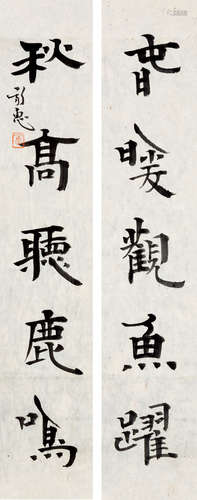 旾暖觀魚躍
秋高聽鹿鳴